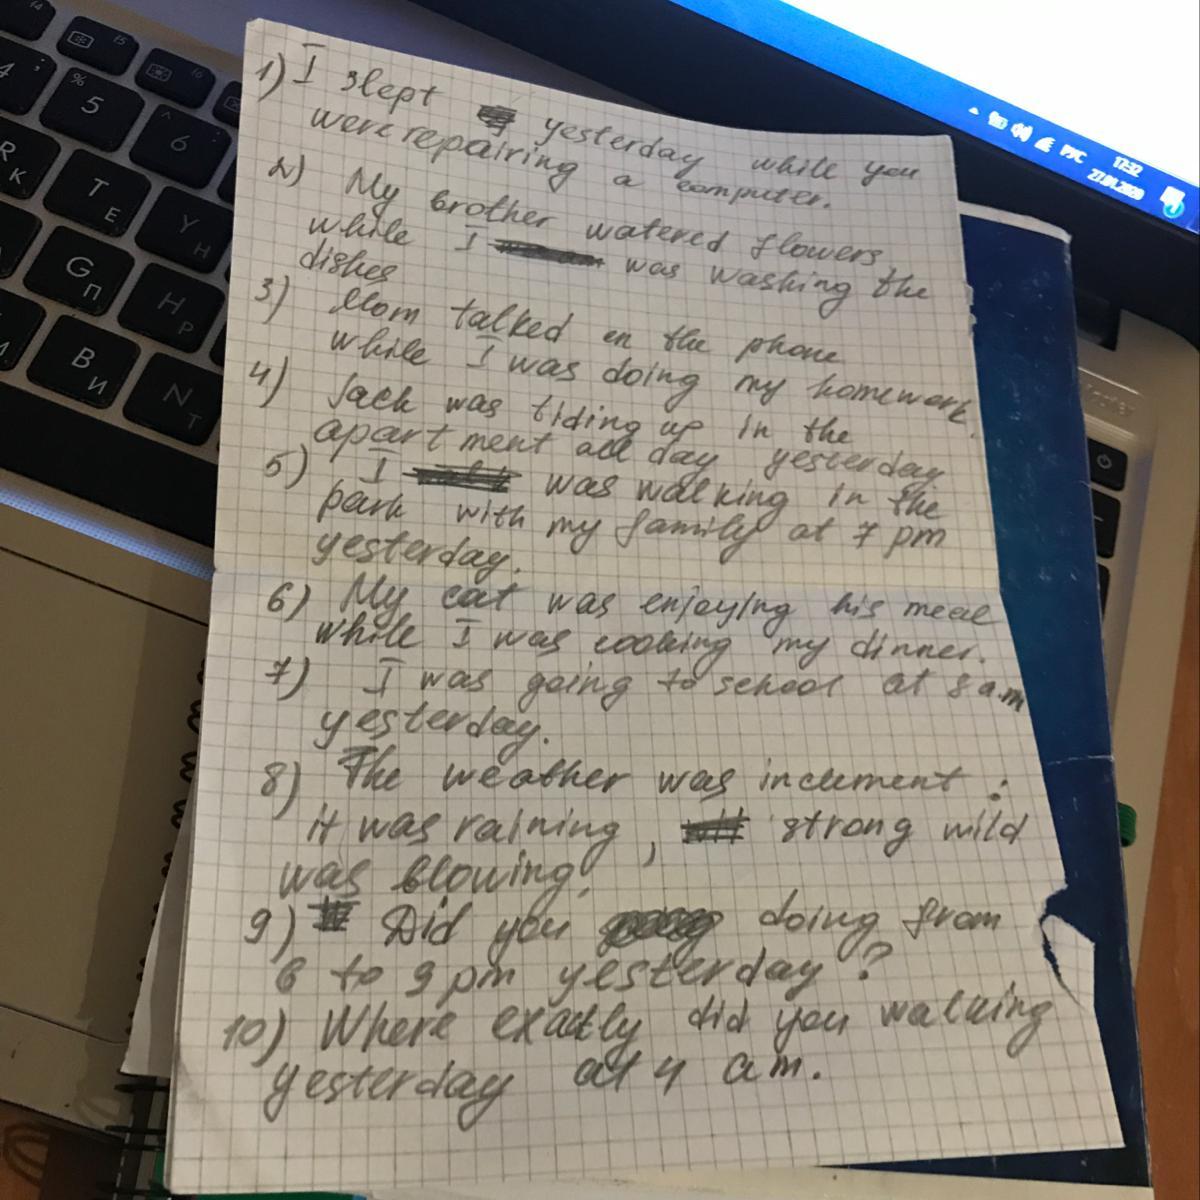 1) I slept yesterday while you
were repairing a computer.
2) My brother watered flowers
while I was washing the
dishes
3) Mom talked on the phone
while I was doing my homework.
4) Jack was tiding up in the
apartment all day yesterday
5) I was walking in the
park with my family at 7 pm
yesterday.
6) My cat was enjoying his meal
while I was cooking my dinner.
7) I was going to school at 8 a.m
yesterday.
8) The weather was inclument :
it was raining, strong wild
was blowing.
9) Did you doing from
6 to 9 pm yesterday?
10) Where exactly did you walking
yesterday at 4 am.
РУС
17:32
5
6
R
К
T
Е
Y
Н
G
П
H
Р
B
И
N
Т